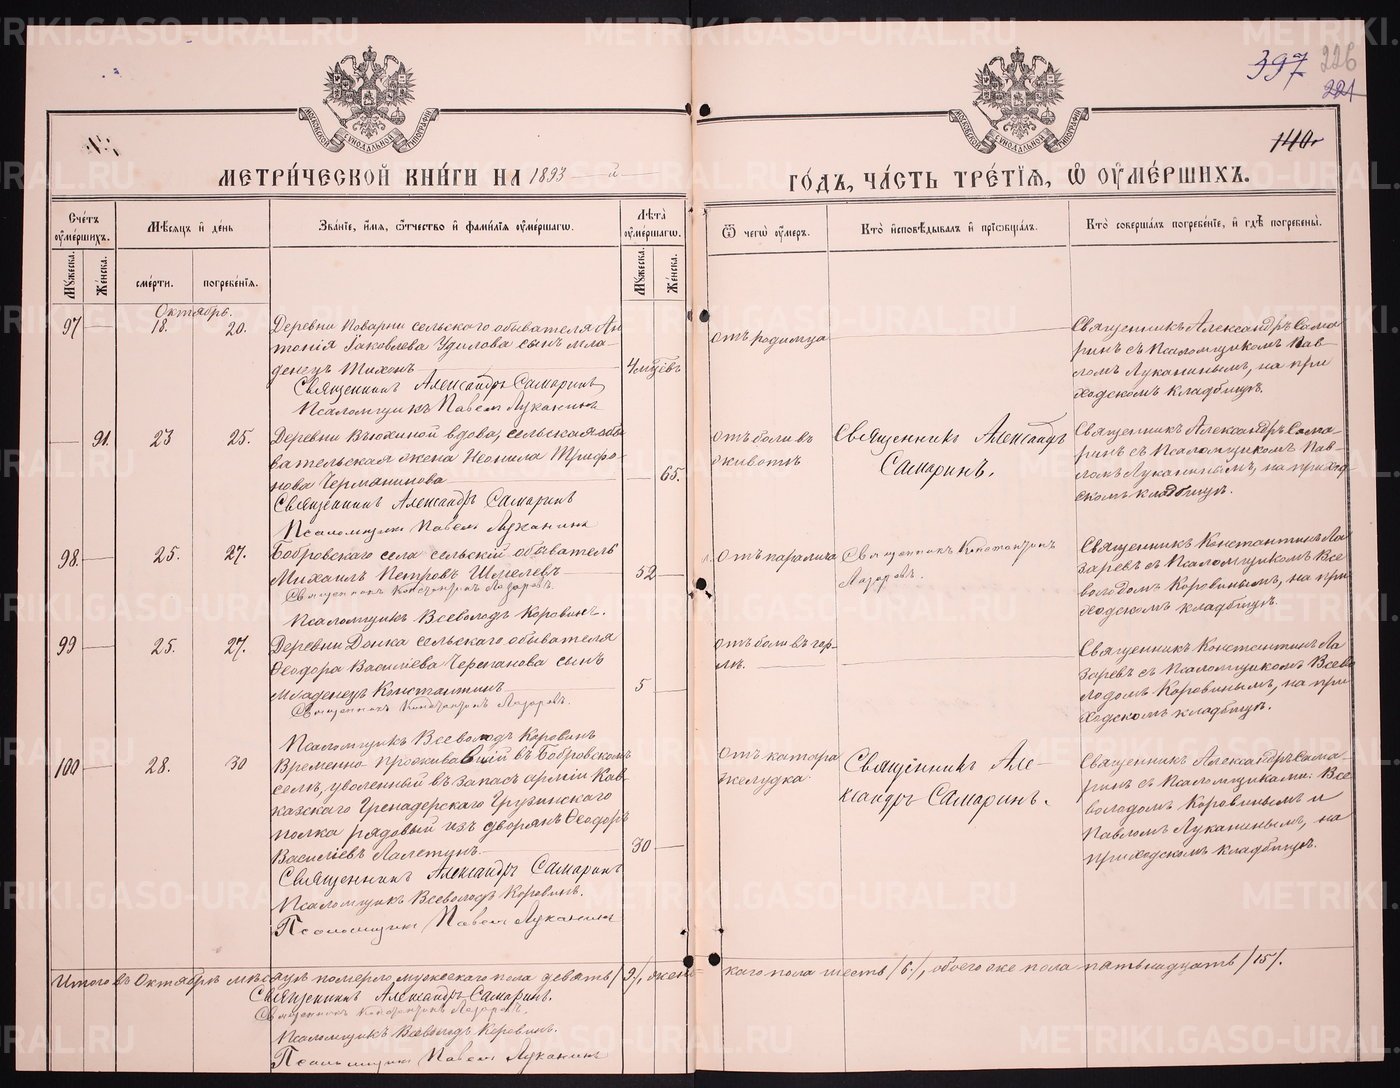 METRIKI.GASO-URAL.RU
397 226
221
МОСКОВСКОЙ СѴНОДАЛЬНОЙ ТИПОГРАФІИ
МОСКОВСКОЙ СѴНОДАЛЬНОЙ ТИПОГРАФІИ
140
МЕТРИ́ЧЕСКОЙ КНИ́ГИ НА 1893 й
ГО́ДЪ, ЧА́СТЬ ТРЕ́ТІЯ, Ѡ ОУМЕ́РШИХЪ.
Сче́тъ оуме́ршихъ.
Мꙋжеска.
Же́нска.
Мѣсѧцъ и де́нь
сме́рти.
погребе́нїѧ.
Зва́нїе, и́мѧ, ѻ҆́тчество и҆ фами́лїѧ оуме́ршагѡ.
Лѣта оуме́ршагѡ.
Мꙋжеска.
Же́нска.
Ѿ чегѡ̀ оу́меръ.
Кто̀ и҆сповѣ́дывалъ и҆ прїѡбща́лъ.
Кто̀ соверша́лъ погребе́нїе, и҆ гдѣ̀ погребены̀.
Октябрь.
97 18. 20.
Деревни Поварни сельскаго обывателя Ан-
тонія Іаковлева Удилова сынъ мла-
денецъ Тихонъ
4 мцевъ
Священникъ Александръ Самаринъ
Псаломщикъ Павелъ Луканинъ
отъ родимца
Священникъ Александръ Сама-
ринъ съ Псаломщикомъ Пав-
ломъ Луканинымъ, на при
ходскомъ кладбищѣ.
91. 23 25.
Деревни Вьюхиной вдова, сельская обы-
вательская жена Неонила Трифо-
нова Черманинова
65.
Священникъ Александръ Самаринъ
Псаломщикъ Павелъ Луканинъ
отъ боли въ
животѣ
Священникъ Александръ
Самаринъ.
Священникъ Александръ Сама-
ринъ съ Псаломщикомъ Пав-
ломъ Луканинымъ, на приход-
скомъ кладбищѣ.
98. 25. 27.
Бобровскаго села сельскій обыватель
Михаилъ Петровъ Шмелевъ
52
Священникъ Константинъ Лазаревъ.
Псаломщикъ Всеволодъ Коровинъ.
Отъ паралича
Священникъ Константинъ
Лазаревъ.
Священникъ Константинъ Ла-
заревъ съ Псаломщикомъ Все-
володомъ Коровинымъ, на при
ходскомъ кладбищѣ.
99 25. 27.
Деревни Донка сельскаго обывателя
Ѳеодора Василіева Черепанова сынъ
младенецъ Константинъ
5
Священникъ Константинъ Лазаревъ.
Псаломщикъ Всеволодъ Коровинъ
отъ боли въ гор-
лѣ.
Священникъ Константинъ Ла
заревъ съ Псаломщикомъ Всево
лодомъ Коровинымъ, на при
ходскомъ кладбищѣ.
100 28. 30
Временно проживавшій въ Бобровскомъ
селѣ, уволенный въ запасъ арміи Кав-
казскаго Гренадерскаго Грузинскаго
полка рядовый изъ дворянъ Ѳеодоръ
Василіевъ Лалетинъ.
30
Священникъ Александръ Самаринъ
Псаломщикъ Всеволодъ Коровинъ.
Псаломщикъ Павелъ Луканинъ
отъ катара
желудка
Священникъ Але-
ксандръ Самаринъ.
Священникъ Александръ Сама-
ринъ съ Псаломщиками: Все-
володомъ Коровинымъ и
Павломъ Луканинымъ, на
приходскомъ кладбищѣ.
Итого въ Октябрѣ мѣсяцѣ померло мужескаго пола девять /9/, женс-
каго пола шесть /6/, обоего же пола пятьнадцать /15/.
Священникъ Александръ Самаринъ.
Священникъ Константинъ Лазаревъ.
Псаломщикъ Всеволодъ Коровинъ.
Псаломщикъ Павелъ Луканинъ